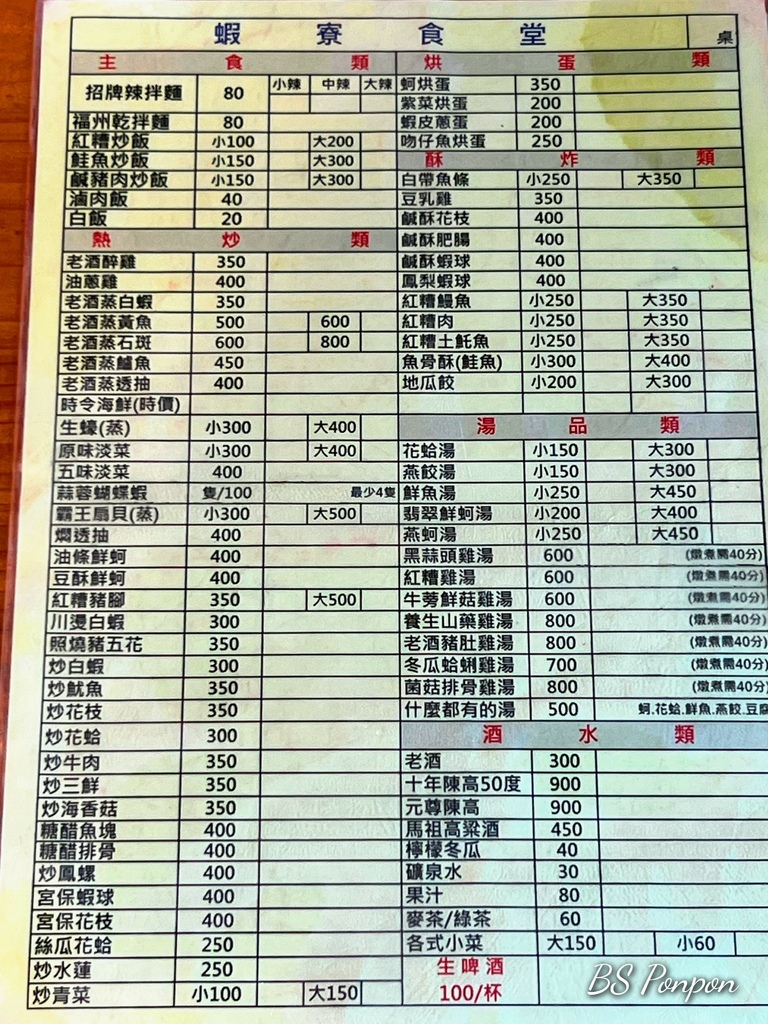 蝦寮食堂 桌
主食類
招牌辣拌麵 80 小辣 中辣 大辣
福州乾拌麵 80
紅糟炒飯 小100 大200
鮭魚炒飯 小150 大300
鹹豬肉炒飯 小150 大300
滷肉飯 40
白飯 20
熱炒類
老酒醉雞 350
油蔥雞 400
老酒蒸白蝦 350
老酒蒸黃魚 500 600
老酒蒸石斑 600 800
老酒蒸鱸魚 450
老酒蒸透抽 400
時令海鮮(時價)
生蠔(蒸) 小300 大400
原味淡菜 小300 大400
五味淡菜 400
蒜蓉蝴蝶蝦 隻/100 最少4隻
霸王扇貝(蒸) 小300 大500
燜透抽 400
油條鮮蚵 400
豆酥鮮蚵 400
紅糟豬腳 350 大500
川燙白蝦 300
照燒豬五花 350
炒白蝦 300
炒魷魚 350
炒花枝 350
炒花蛤 300
炒牛肉 350
炒三鮮 350
炒海香菇 350
糖醋魚塊 400
糖醋排骨 400
炒鳳螺 400
宮保蝦球 400
宮保花枝 400
絲瓜花蛤 250
炒水蓮 250
炒青菜 小100 大150
烘蛋類
蚵烘蛋 350
紫菜烘蛋 200
蝦皮蔥蛋 200
吻仔魚烘蛋 250
酥炸類
白帶魚條 小250 大350
豆乳雞 350
鹹酥花枝 400
鹹酥肥腸 400
鹹酥蝦球 400
鳳梨蝦球 400
紅糟鰻魚 小250 大350
紅糟肉 小250 大350
紅糟土魠魚 小250 大350
魚骨酥(鮭魚) 小300 大400
地瓜餃 小200 大300
湯品類
花蛤湯 小150 大300
燕餃湯 小150 大300
鮮魚湯 小250 大450
翡翠鮮蚵湯 小200 大400
燕蚵湯 小250 大450
黑蒜頭雞湯 600 (燉煮需40分)
紅糟雞湯 600 (燉煮需40分)
牛蒡鮮菇雞湯 600 (燉煮需40分)
養生山藥雞湯 800 (燉煮需40分)
老酒豬肚雞湯 800 (燉煮需40分)
冬瓜蛤蜊雞湯 700 (燉煮需40分)
菌菇排骨雞湯 800 (燉煮需40分)
什麼都有的湯 500 蚵.花蛤.鮮魚.燕餃.豆腐
酒水類
老酒 300
十年陳高50度 900
元尊陳高 900
馬祖高粱酒 450
檸檬冬瓜 40
礦泉水 30
果汁 80
麥茶/綠茶 60
各式小菜 大150 小60
生啤酒
100/杯
BS Ponpon